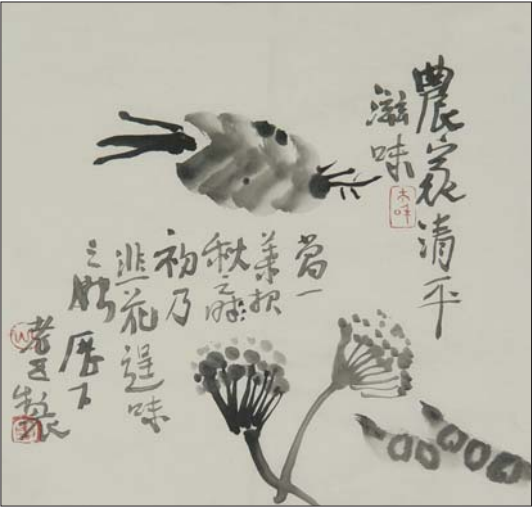 農家清平
滋味
當一
葉報
秋之
初乃
韭花逞味
之始歷下